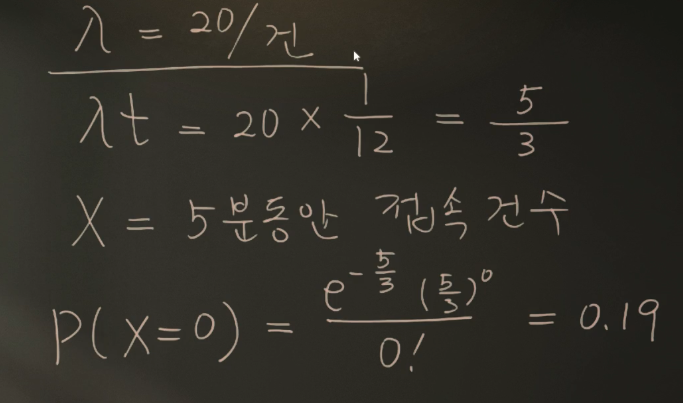 λ = 20/건
λt = 20 × 1/12 = 5/3
X = 5분동안 접속 건수
P(X=0) = e^{-5/3} (5/3)^0 / 0! = 0.19